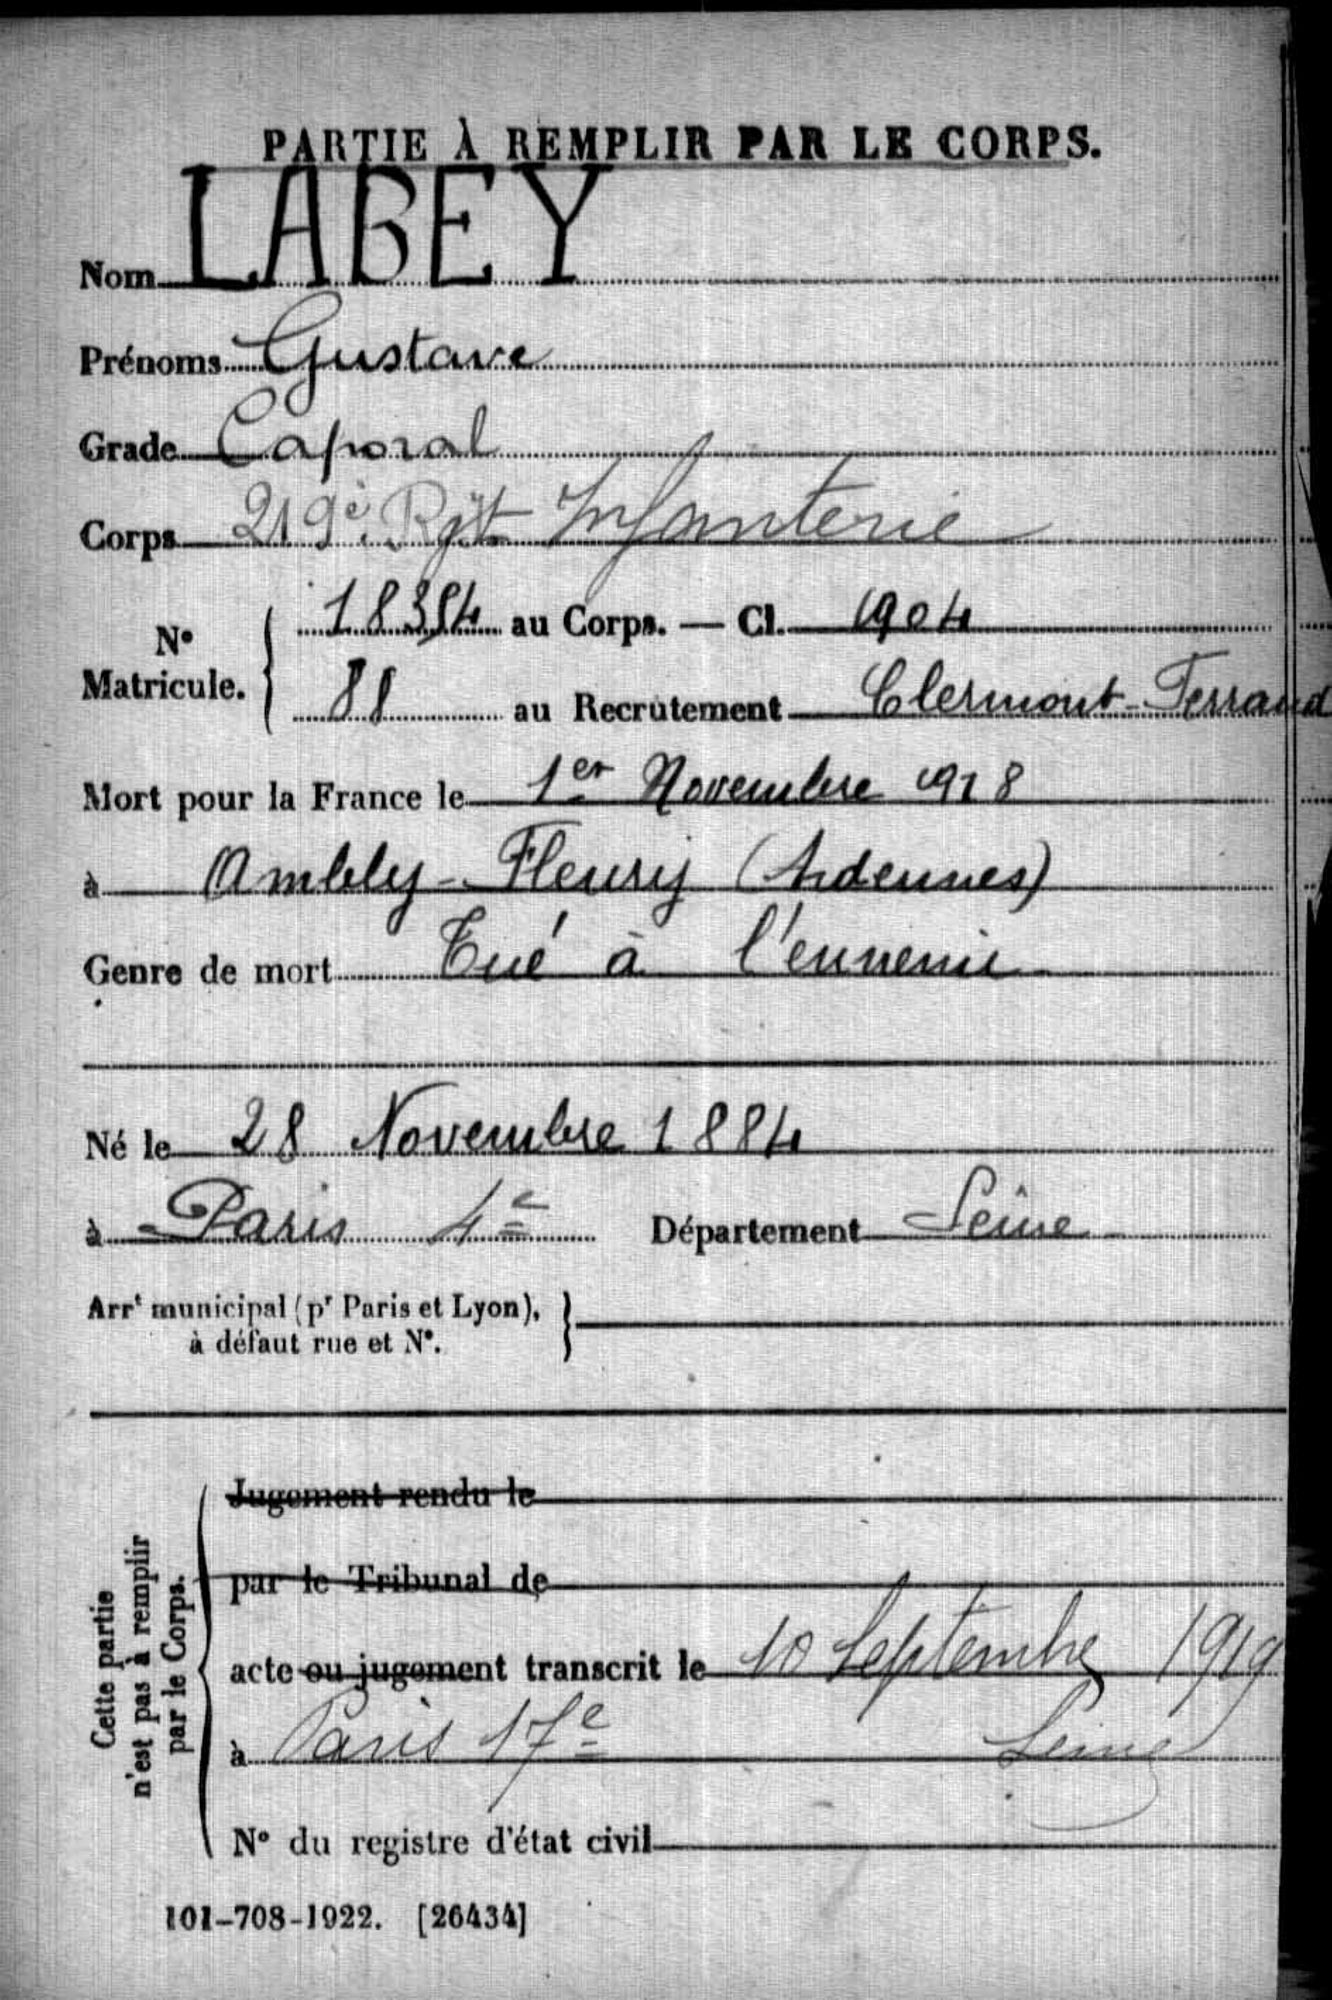 PARTIE À REMPLIR PAR LE CORPS.
Nom LABEY
Prénoms Gustave
Grade Caporal
Corps 219è Rgt Infanterie
N° Matricule. 18354 au Corps. — Cl. 1904
88 au Recrutement Clermont-Ferrand
Mort pour la France le 1er Novembre 1918
à Ambly-Fleury (Ardennes)
Genre de mort Tué à l'ennemi
Né le 28 Novembre 1884
à Paris 4e Département Seine
Arrt municipal (pr Paris et Lyon),
à défaut rue et N°.
Cette partie
n'est pas à remplir
par le Corps.
Jugement rendu le
par le Tribunal de
acte ou jugement transcrit le 10 Septembre 1919
à Paris 17e Seine
N° du registre d'état civil
101-708-1922. [26434]